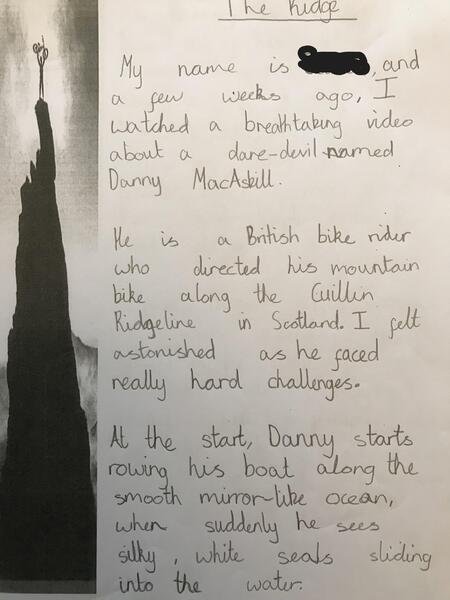 The Ridge
My name is , and
a few weeks ago, I
watched a breathtaking video
about a dare-devil named
Danny MacAskill.
He is a British bike rider
who directed his mountain
bike along the Cuillin
Ridgeline in Scotland. I felt
astonished as he faced
really hard challenges.
At the start, Danny starts
rowing his boat along the
smooth mirror-like ocean,
when suddenly he sees
silky, white seals sliding
into the water.